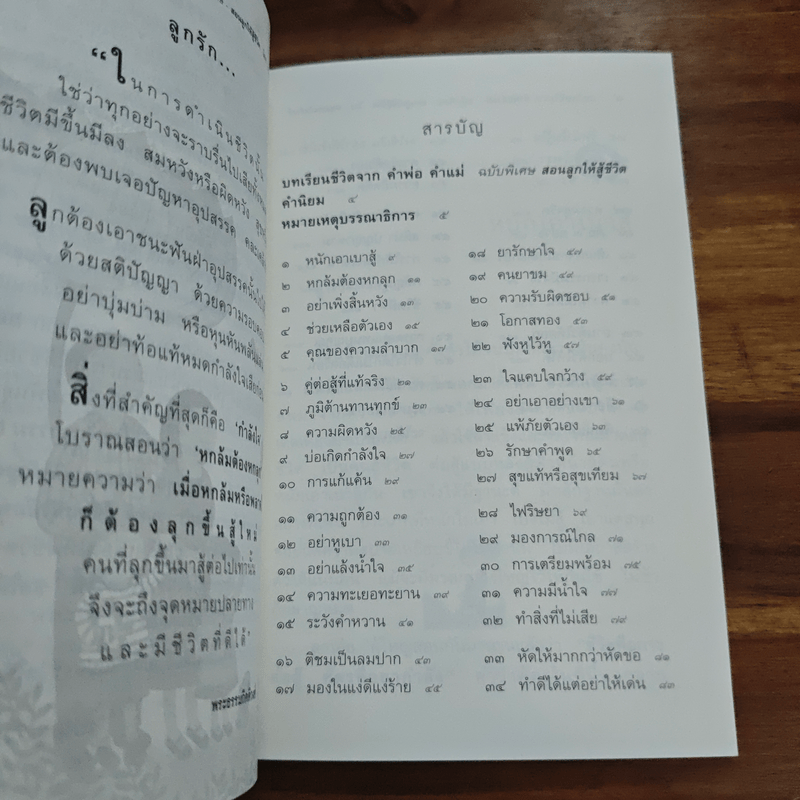 ลูกรัก...
“ในการดำเนินชีวิตนั้น
ใช่ว่าทุกอย่างจะราบรื่นไปเสียทั้งหมด
ชีวิตมีขึ้นมีลง สมหวังหรือผิดหวัง
และต้องพบเจอปัญหาอุปสรรค
ลูกต้องเอาชนะฟันฝ่าอุปสรรคนั้นไปให้
ด้วยสติปัญญา ด้วยความรอบคอบ
อย่าบุ่มบ่าม หรือหุนหันพลันแล่น
และอย่าท้อแท้หมดกำลังใจเสียก่อน
สิ่งที่สำคัญที่สุดก็คือ ‘กำลังใจ’
โบราณสอนว่า ‘หกล้มต้องหกลุก’
หมายความว่า เมื่อหกล้มหรือพลาด
ก็ต้องลุกขึ้นสู้ใหม่
คนที่ลุกขึ้นมาสู้ต่อไปเท่านั้น
จึงจะถึงจุดหมายปลายทาง
และมีชีวิตที่ดีได้”
สารบัญ
บทเรียนชีวิตจาก คำพ่อ คำแม่ ฉบับพิเศษ สอนลูกให้สู้ชีวิต
คำนิยม ๔
หมายเหตุบรรณาธิการ ๕
๑ หนักเอาเบาสู้ ๙
๒ หกล้มต้องหกลุก ๑๑
๓ อย่าเพิ่งสิ้นหวัง ๑๓
๔ ช่วยเหลือตัวเอง ๑๕
๕ คุณของความลำบาก ๑๗
๖ คู่ต่อสู้ที่แท้จริง ๒๑
๗ ภูมิต้านทานทุกข์ ๒๓
๘ ความผิดหวัง ๒๕
๙ บ่อเกิดกำลังใจ ๒๗
๑๐ การแก้แค้น ๒๙
๑๑ ความถูกต้อง ๓๑
๑๒ อย่าหูเบา ๓๓
๑๓ อย่าแล้งน้ำใจ ๓๕
๑๔ ความทะเยอทะยาน ๓๙
๑๕ ระวังคำหวาน ๔๑
๑๖ ติชมเป็นลมปาก ๔๓
๑๗ มองในแง่ดีแง่ร้าย ๔๕
๑๘ ยารักษาใจ ๔๗
๑๙ คนยาขม ๔๙
๒๐ ความรับผิดชอบ ๕๑
๒๑ โอกาสทอง ๕๓
๒๒ ฟังหูไว้หู ๕๗
๒๓ ใจแคบใจกว้าง ๕๙
๒๔ อย่าเอาอย่างเขา ๖๑
๒๕ แพ้ภัยตัวเอง ๖๓
๒๖ รักษาคำพูด ๖๕
๒๗ สุขแท้หรือสุขเทียม ๖๗
๒๘ ไฟริษยา ๖๙
๒๙ มองการณ์ไกล ๗๑
๓๐ การเตรียมพร้อม ๗๕
๓๑ ความมีน้ำใจ ๗๗
๓๒ ทำสิ่งที่ไม่เสีย ๗๙
๓๓ หัดให้มากกว่าหัดขอ ๘๑
๓๔ ทำดีได้แต่อย่าให้เด่น ๘๓